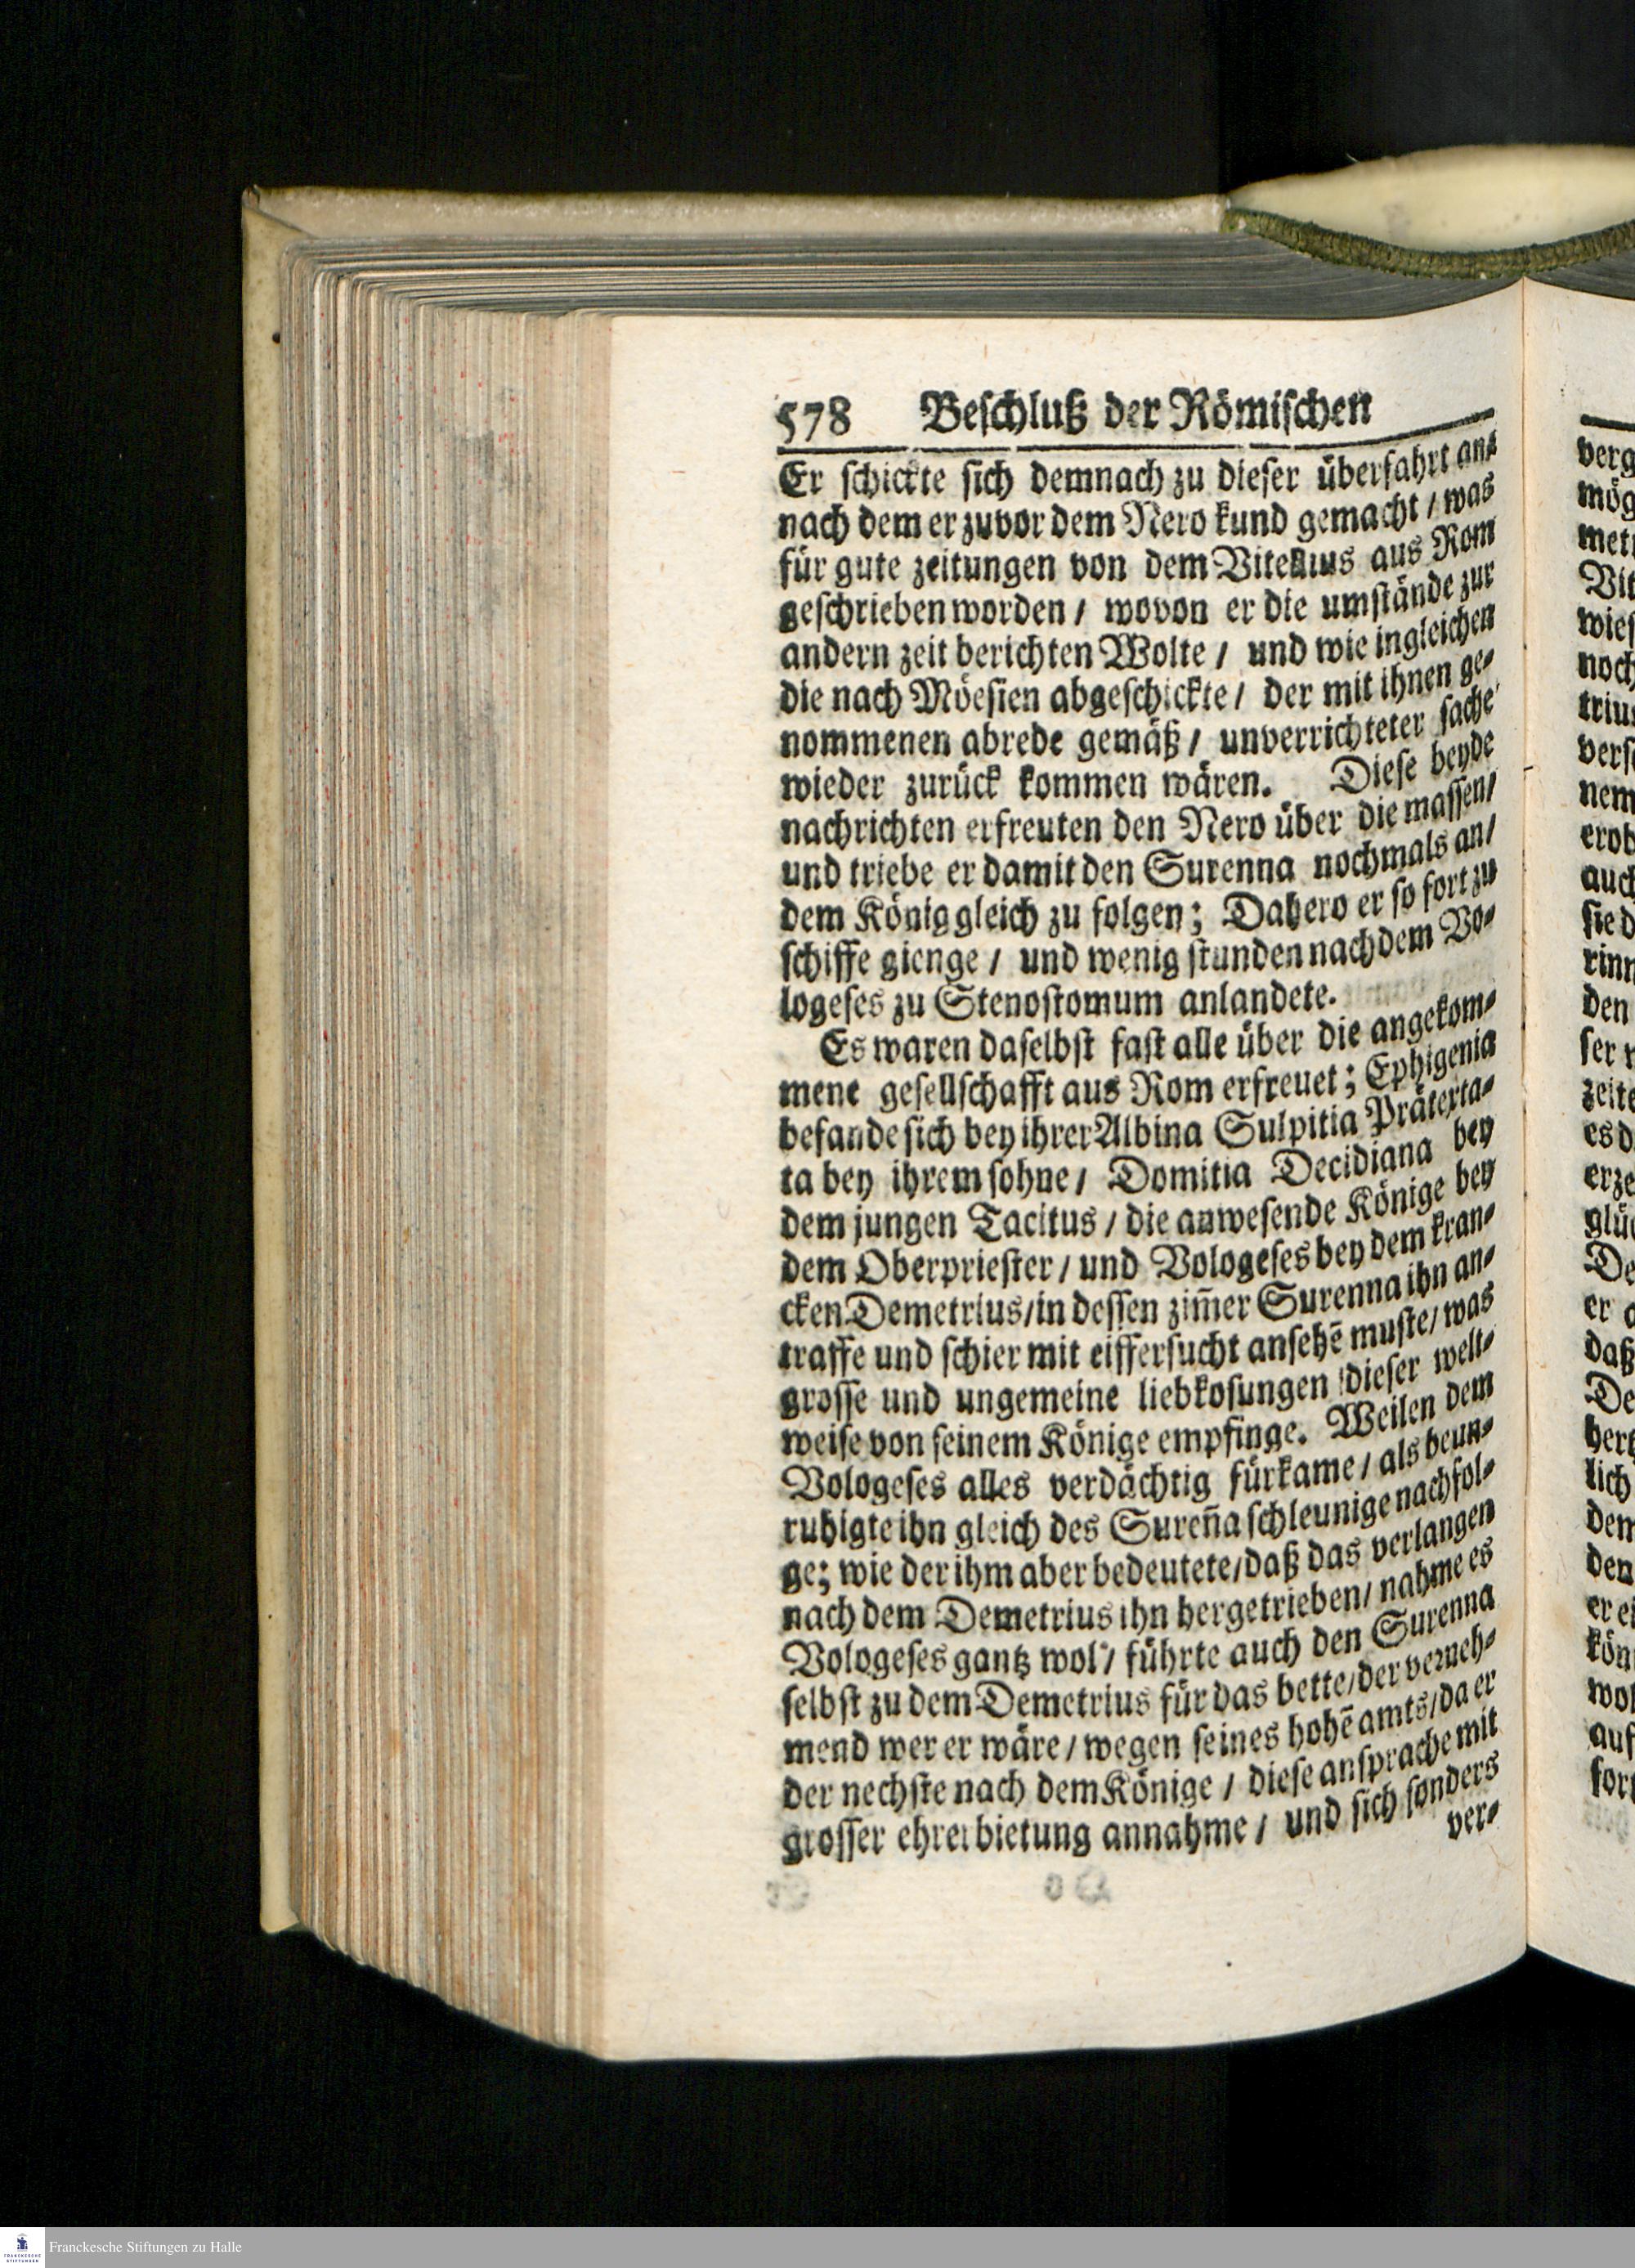 578 Beschluß der Römischen
Er schickte sich demnach zu dieser überfahrt an/
nach dem er zuvor dem Nero kund gemacht / was
für gute zeitungen von dem Vitellius aus Rom
geschrieben worden / wovon er die umstände zur
andern zeit berichten Wolte / und wie ingleichen
die nach Möesien abgeschickte / der mit ihnen ge-
nommenen abrede gemäß / unverrichteter sache
wieder zurück kommen wären. Diese beyde
nachrichten erfreuten den Nero über die massen/
und triebe er damit den Surenna nochmals an/
dem König gleich zu folgen; Dahero er so fort zu
schiffe gienge / und wenig stunden nach dem Vo-
logeses zu Stenostomum anlandete.
Es waren daselbst fast alle über die angekom-
mene gesellschafft aus Rom erfreuet; Ephigenia
befande sich bey ihrer Albina Sulpitia Prätexta-
ta bey ihrem sohne / Domitia Decidiana bey
dem jungen Tacitus / die anwesende Könige bey
dem Oberpriester / und Vologeses bey dem kran-
cken Demetrius/in dessen zim̄er Surenna ihn an-
traffe und schier mit eiffersucht ansehē muste/ was
grosse und ungemeine liebkosungen dieser welt-
weise von seinem Könige empfinge. Weilen dem
Vologeses alles verdächtig fürkame / als beun-
ruhigte ihn gleich des Sureña schleunige nachfol-
ge; wie der ihm aber bedeutete/daß das verlangen
nach dem Demetrius ihn hergetrieben/ nahme es
Vologeses gantz wol / führte auch den Surenna
selbst zu dem Demetrius für das bette/der verneh-
mend wer er wäre / wegen seines hohē amts/da er
der nechste nach dem Könige / diese ansprache mit
grosser ehrerbietung annahme / und sich sonders
ver-
verg
mög
metr
Vit
wies
noch
trius
vers
nem
erob
auch
sie d
rinn
den
ser
zeite
es d
erze
glü
De
er
daß
De
hertz
lich
dem
den
er ei
kön
wol
auf
fort
Franckesche Stiftungen zu Halle